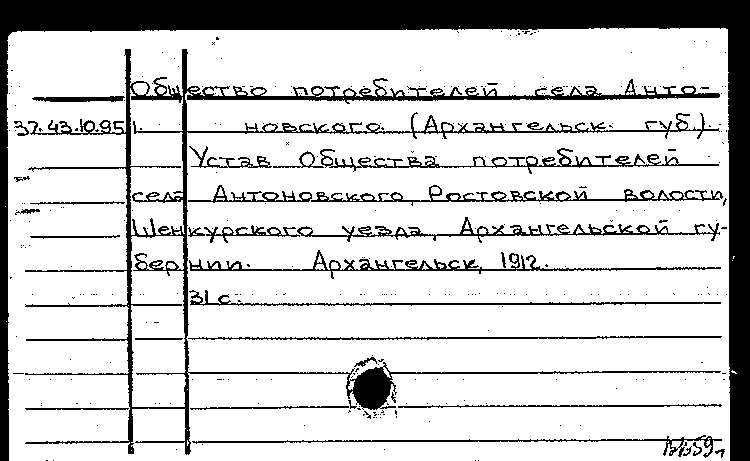 Общество потребителей села Анто-
37.43.10.95 1. новского (Архангельск. губ.).
Устав Общества потребителей
села Антоновского, Ростовской волости,
Шенкурского уезда, Архангельской гу-
бернии. Архангельск, 1912.
31 с.